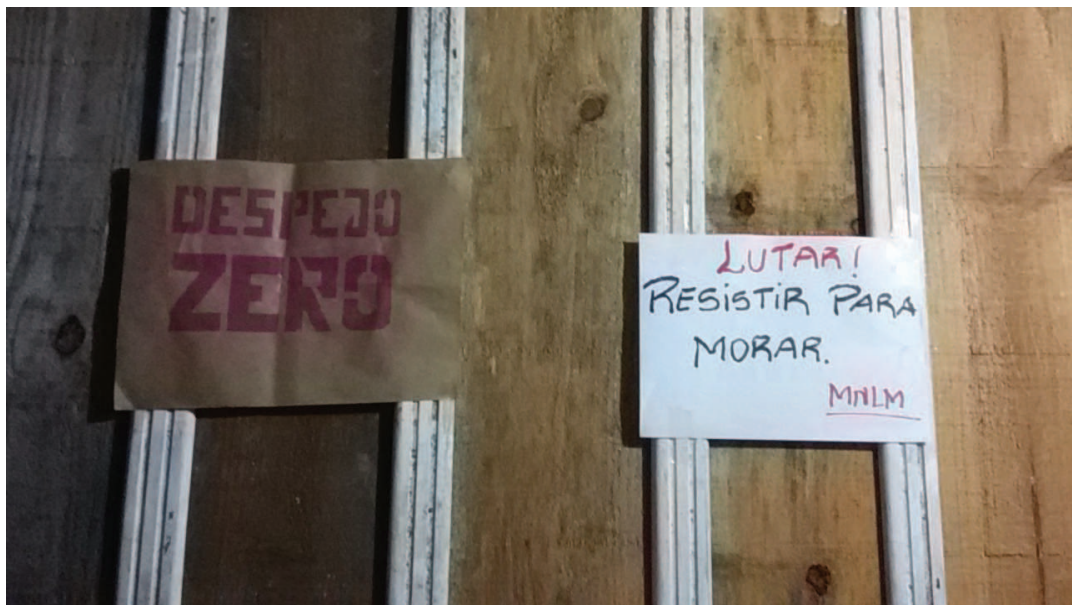 DESPEJO
ZERO
LUTAR!
RESISTIR PARA
MORAR.
MNLM